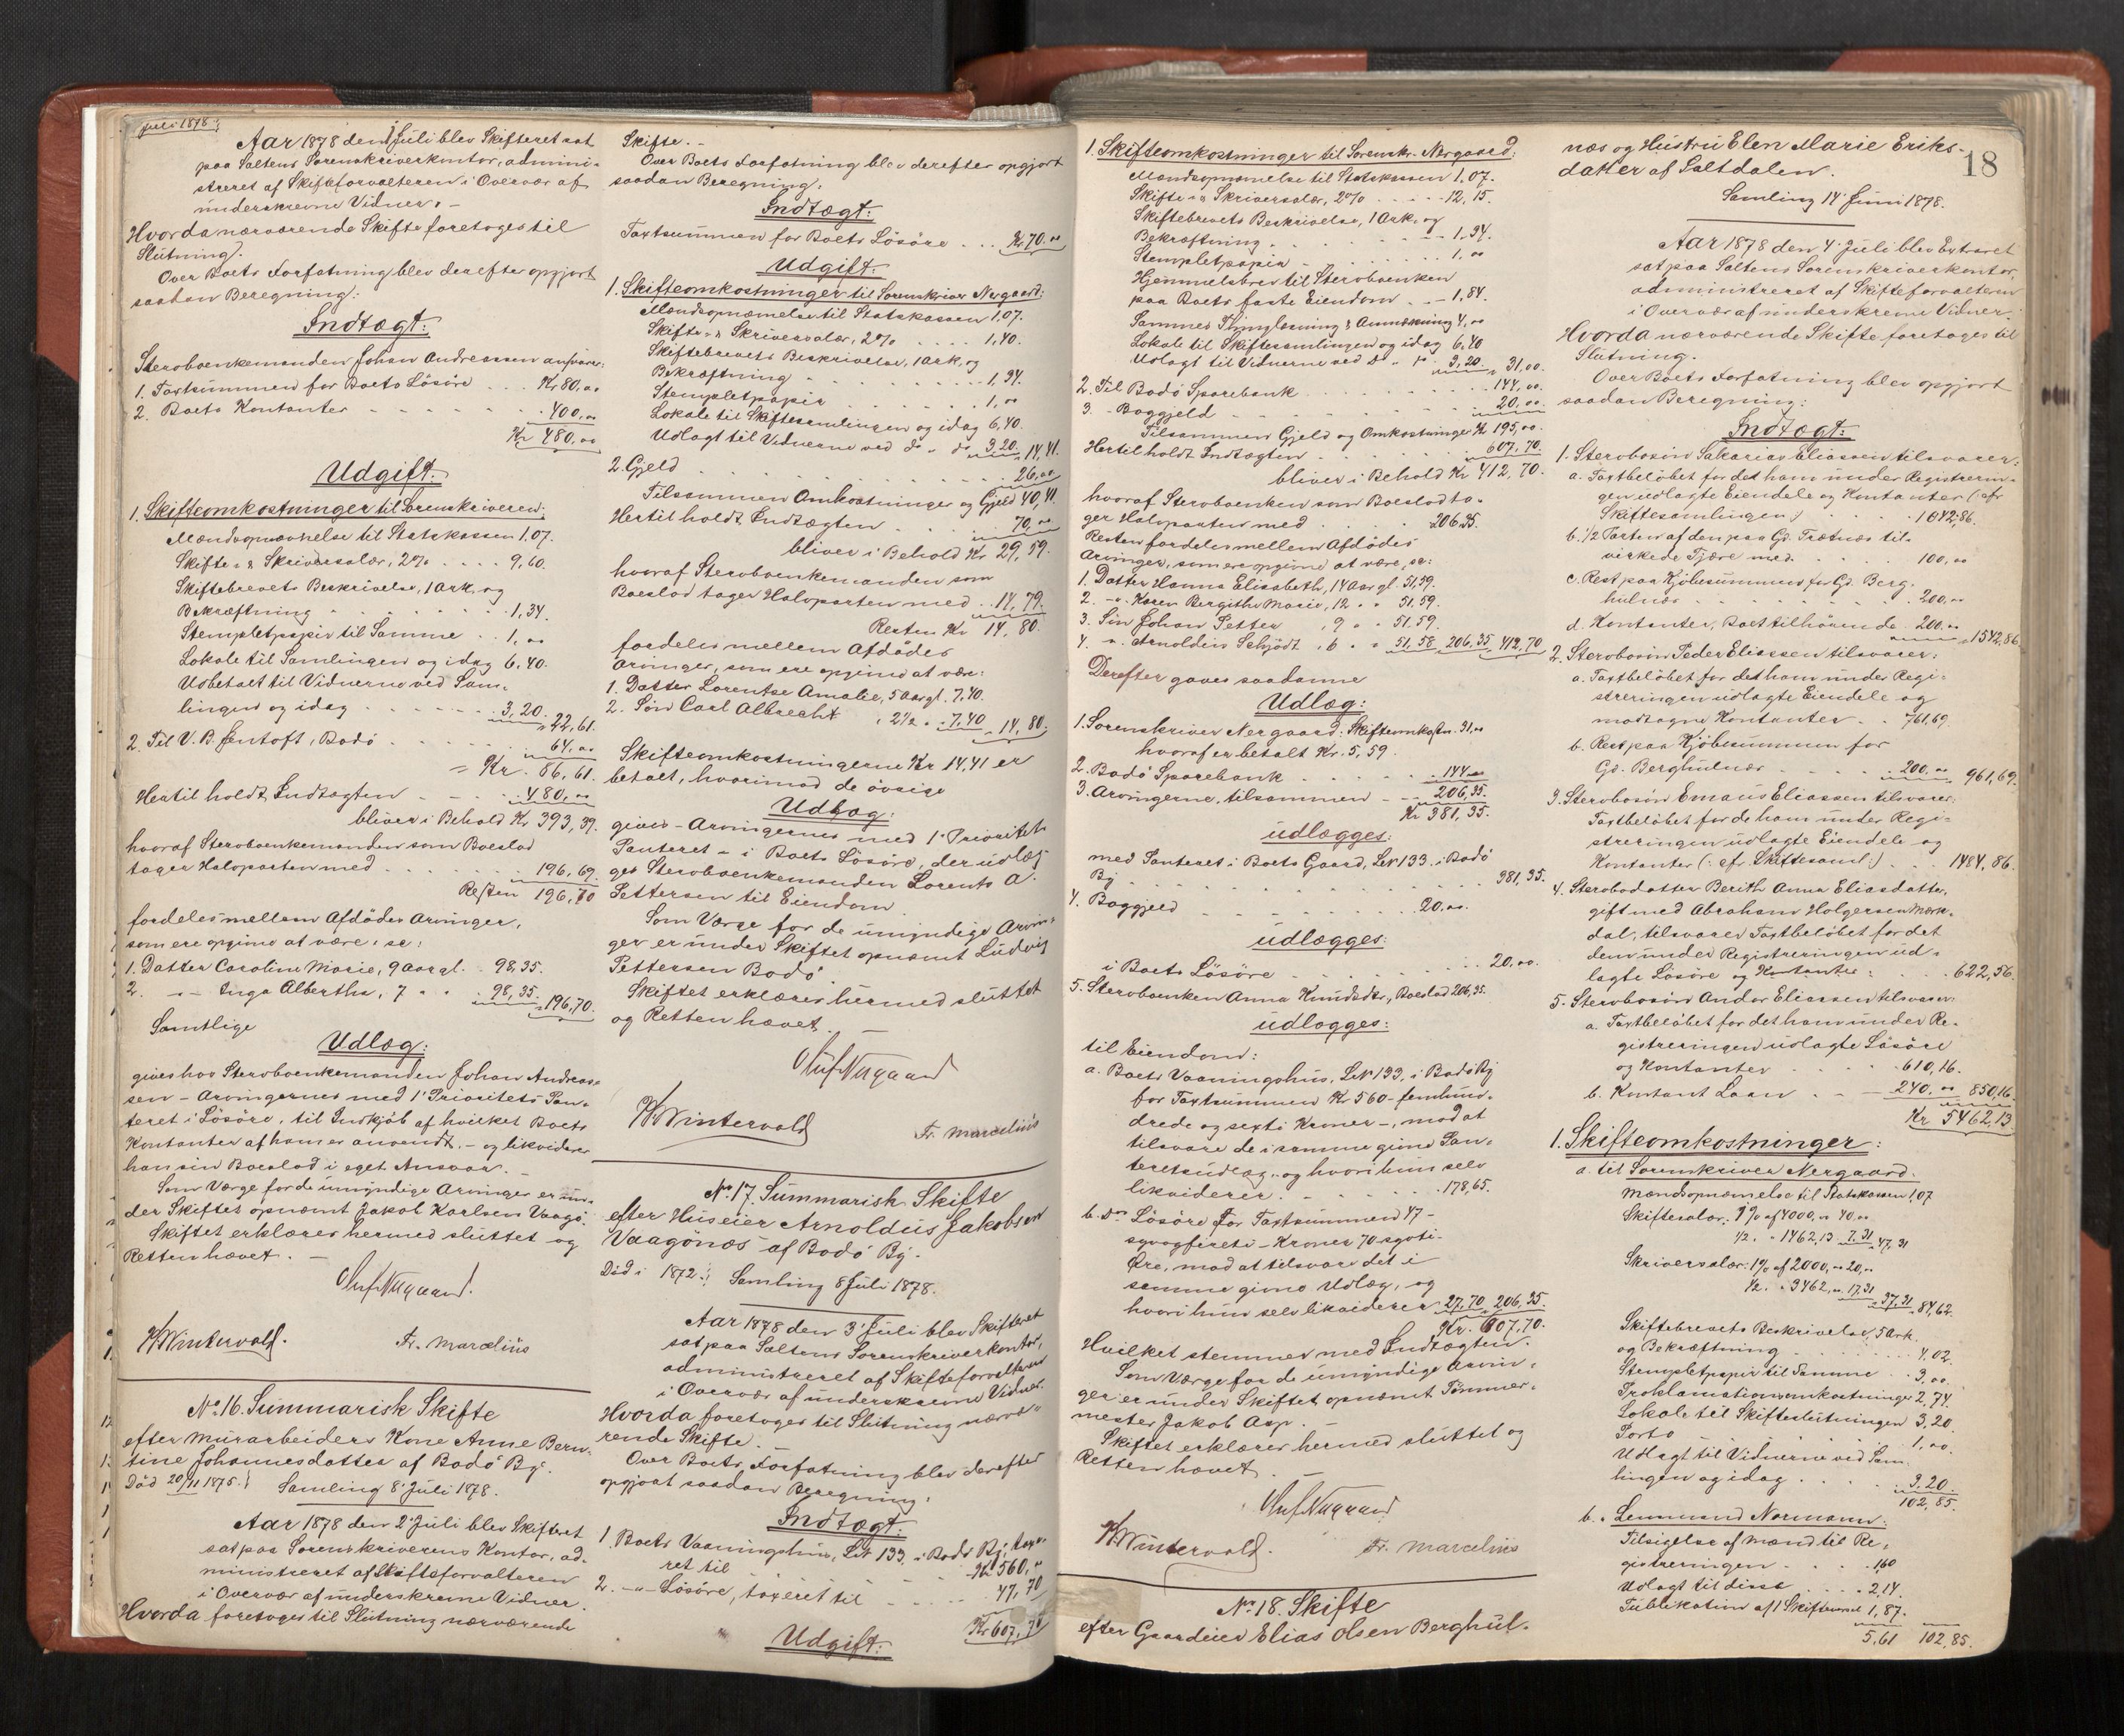 Juli 1878.
Aar 1878 den 1 Juli blev Skifteret sat
paa Saltens Sorenskriverkontor, admini-
streret af Skifteforvalteren i Overvær af
underskrevne Vidner. -
Hvorda nærværende Skifte foretoges til
Slutning.
Over Boets Forfatning blev derefter opgjort
saadan Beregning:
Indtægt:
Stervboenkemanden Johan Andreassen ansvarer:
1. Taxtsummen for Boets Lösöre . . . Kr 80,00
2. Boets Kontanter - - - - 400,00
Kr 480,00
Udgift:
1. Skifteomkostninger til Sorenskriveren:
Mændsopnævnelse til Statskassen 1,07.
Skifte- & Skriversalær, 2% . . . . 9,60.
Skiftebrevets Beskrivelse, 1 Ark, og
Bekræftning . . . . 1,34.
Stempletpapir til Samme . . 1,00
Lokale til Samlingen og idag 6,40.
Udbetalt til Vidnerne ved Sam-
lingen og idag . . . . 3,20. 22,61.
2. Til V. B. Jentoft, Bodö . . . . 64,00
= Kr. 86,61.
Hertil holdt Indtægten - - 480,00
bliver i Behold Kr 393,39.
hvoraf Stervboenkemanden som Boeslod
tager Halvparten med . . . . 196,69.
Resten 196,70
fordeles mellem Afdödes Arvinger,
som ere opgivne at være: se:
1. Datter Caroline Marie, 9 Aar gl. . 98,35.
2. -"- Inga Alberthe, 7 " " 98,35. 196,70.
Samtlige
Udlæg:
gives hos Stervboenkemanden Johan Andreas-
sen - Arvingernes med 1' Prioritets Pan-
teret i Lösöre, til Indkjöb af hvilket Boets
Kontanter af ham er anvendt, - og likviderer
han sin Boeslod i eget Ansvar. -
Som Værge for de umyndige Arvinger er un-
der Skiftet opnævnt Jakob Karlsen Vaagö.
Skiftet erklæres hermed sluttet og
Retten hævet. -
Oluf Nergaard.
H. Wintervold. Fr. Marcelius
No. 16. Summarisk Skifte
efter Murarbeiders Kone Anne Bern-
tine Johannesdatter af Bodö By.
Död 20/11 1875. Samling 8' Juli 1878.
Aar 1878 den 2' Juli blev Skifteret
sat paa Sorenskriverens Kontor, ad-
ministreret af Skifteforvalteren
i Overvær af underskrevne Vidner.
Hvorda foretoges til Slutning nærværende
Skifte. -
Over Boets Forfatning blev derefter opgjort
saadan Beregning:
Indtægt:
Taxtsummen for Boets Lösöre . . . Kr 70.00
Udgift:
1. Skifteomkostninger til Sorenskriver Nergaard:
Mændsopnævnelse til Statskassen 1,07.
Skifte- & Skriversalær, 2% . . . . 1,40.
Skiftebrevets Beskrivelse, 1 Ark, og
Bekræftning . . . . 1,34.
Stempletpapir . . . . 1,00
Lokale til Skiftesamlingen og idag 6,40.
Udlagt til Vidnerne ved do " do 3,20. 14,41.
2. Gjeld . . . . 26,00
Tilsammen Omkostninger og Gjeld 40,41.
Hertil holdt Indtægten . . . . 70,00
bliver i Behold Kr 29,59.
hvoraf Stervboenkemanden som
Boeslod tager Halvparten med . . 14,79.
Resten Kr 14,80.
fordeles mellem Afdödes
Arvinger, som ere opgivne at være:
1. Datter Lorentse Amalie, 5 Aar gl. 7,40.
2. Sön Carl Albrecht " 2½ " " 7,40 14,80.
Skifteomkostningerne Kr 14,41 er
betalt, hvorimod de övrige
Udlæg:
gives - Arvingernes med 1' Prioritets
Panteret - i Boets Lösöre, der udlæg-
ges Stervboenkemanden Lorents A.
Pettersen til Eiendom.
Som Værge for de umyndige Arvin-
ger er under Skiftet opnævnt Ludvig
Pettersen Bodö.
Skiftet erklæres hermed sluttet
og Retten hævet. -
Oluf Nergaard
H. Wintervold Fr. Marcelius
No. 17. Summarisk Skifte
efter Huseier Arnoldus Jakobsen
Vaagönæs af Bodö By.
Död i 1872. Samling 8 Juli 1878.
Aar 1878 den 3' Juli blev Skifteret
sat paa Saltens Sorenskriverkontor,
administreret af Skifteforvalteren
i Overvær af underskrevne Vidner.
Hvorda foretoges til Slutning nærvæ-
rende Skifte.
Over Boets Forfatning blev derefter
opgjort saadan Beregning:
Indtægt:
1. Boets Vaaningshus, Lt 133, i Bodö By, taxe-
ret til Kr 560,00
2. -"- Lösöre, taxeret til - - - - 47,70
Kr 607,70
Udgift:
1. Skifteomkostninger til Sorenskr. Nergaard:
Mændsopnævnelse til Statskassen 1,07.
Skifte- & Skriversalær, 2% . . . . 12,15.
Skiftebrevets Beskrivelse, 1 Ark, og
Bekræftning . . . . 1,34.
Stempletpapir . . . . 1,00
Hjemmelsbrev til Stervboenken
paa Boets faste Eiendom . . - 1,84.
Sammes Thinglæsning & Anmærkning 4,00
Lokale til Skiftesamlingen og idag 6,40
Udlagt til Vidnerne ved do " do 3,20. 31,00.
2. Til Bodö Sparebank . . . . 144,00.
3. - Boggjeld - - - - 20,00.
Tilsammen Gjeld og Omkostninger Kr 195,00.
Hertil holdt Indtægten . . . . 607,70.
bliver i Behold Kr 412,70.
hvoraf Stervboenken som Boeslod ta-
ger Halvparten med . . . . 206,35.
Resten fordeles mellem Afdödes
Arvinger, som ere opgivne at være, se:
1. Datter Hanna Elisabeth, 14 Aar gl. 51,59.
2. -"- Karen Bergithe Marie, 12 " " 51.59.
3. Sön Johan Petter " 9 " " 51.59.
4. " Arnoldin Schjödt " 6 " " 51,58 206,35 412,70
Derefter gaves saadanne
Udlæg:
1. Sorenskriver Nergaard: Skifteomkostn. 31,00
hvoraf er betalt Kr. 5,59.
2. Bodö Sparebank . . . . 144,00
3. Arvingerne, tilsammen - - 206,35.
Kr 381,35.
udlægges:
med Panteret i Boets Gaard, Lt 133. i Bodö
By . . . . 381,35.
4. Boggjeld - - - - 20,00.
udlægges:
i Boets Lösöre . . . . 20,00.
5. Stervboenken Anna Knudsdtr, Boeslod 206,35.
udlægges:
til Eiendom:
a. Boets Vaaningshus, Lt 133, i Bodö By
for Taxtsummen Kr 560 - femhun-
drede og sexti Kroner -, mod at
tilsvare de i samme givne Pan-
teretsudlæg, og hvori hun selv
likviderer . . . . 178,65.
b. do Lösöre for Taxtsummen 47 -
syvogfirti - Kroner 70 - sytti -
Öre, mod at tilsvare det i
samme givne Udlæg, og
hvori hun selv likviderer 27,70 206,35.
Kr. 607,70.
Hvilket stemmer med Indtægten.
Som Værge for de umyndige Arvin-
ger er under Skiftet opnævnt Tömmer-
mester Jakob Asp. -
Skiftet erklæres hermed sluttet og
Retten hævet. -
Oluf Nergaard
H. Wintervold. Fr. Marcelius
No. 18. Skifte
efter Gaardeier Elias Olsen Berghul-
18
næs og Hustru Elen Marie Eriks-
datter af Saltdalen.
Samling 14' Juni 1878.
Aar 1878 den 4' Juli blev Extraret
sat paa Saltens Sorenskriverkontor,
administreret af Skifteforvalteren
i Overvær af underskrevne Vidner.
Hvorda nærværende Skifte foretoges til
Slutning.
Over Boets Forfatning blev opgjort
saadan Beregning:
Indtægt:
1. Stervbosön Sakarias Eliassen tilsvarer:
a. Taxtbelöbet for det ham under Registrerin-
gen udlagte Eiendele og Kontanter (: cfr
Skiftesamlingen :) . . . . 1042,86.
b. 1/2 Parten af den paa Gd. Trætnæs til-
virkede Tjære med . . . . 100,00
c. Rest paa Kjöbesummen for Gd. Berg-
hulnæs . . . . 200,00
d. Kontanter, Boet tilhörende . 200,00 1542,86
2. Stervbosön Peder Eliassen tilsvarer:
a. Taxtbelöbet for det ham under Regi-
streringen udlagte Eiendele og
modtagne Kontanter . . 761,69.
b. Rest paa Kjöbesummen for
Gd. Berghulnæs . . . . 200,00 961,69.
3. Stervbosön Emaus Eliassen tilsvarer:
Taxtbelöbet for de ham under Regi-
streringen udlagte Eiendele og
Kontanter (: cfr. Skiftesaml :) . . . 1484,86.
4. Stervbodatter Berith Anna Eliasdatter,
gift med Abraham Holgersen Mærk-
dal, tilsvarer Taxtbelöbet for det
dem under Registreringen ud-
lagte Lösöre og Kontanter . . . . 622,56.
5. Stervbosön Andor Eliassen tilsvarer:
a. Taxtbelöbet for det ham under Re-
gistreringen udlagte Lösöre
og Kontanter . . . . 610,16.
b. Kontant Laan . . - 240,00 850,16.
Kr 5462,13
1. Skifteomkostninger:
a. til Sorenskriver Nergaard.
Mændsopnævnelse til Statskassen 1,07
Skiftesalær: 1% af 4000,00 40,00
1/2 " " 1462,13 7,31 47,31
Skriversalær: 1% af 2000,00 20,00
1/2 " " 3462,00 17,31 37,31 84,62.
Skiftebrevets Beskrivelse, 5 Ark
og Bekræftning . . . . 4,02.
Stempletpapir til Samme . . 3,00.
Proklamationsomkostninger 2,74.
Lokale til Skifteslutningen 3,20.
Porto . . . . 1,00.
Udlagt til Vidnerne ved Sam-
lingen og idag . . . . 3,20.
102,85.
b. Lensmand Normann:
Tilsigelse af Mænd til Re-
gistreringen . . . . 1,60
Udlagt til disse . . . . 2,14.
Publikation af 1 Skiftevarsel 1,87.
5,61 102,85.